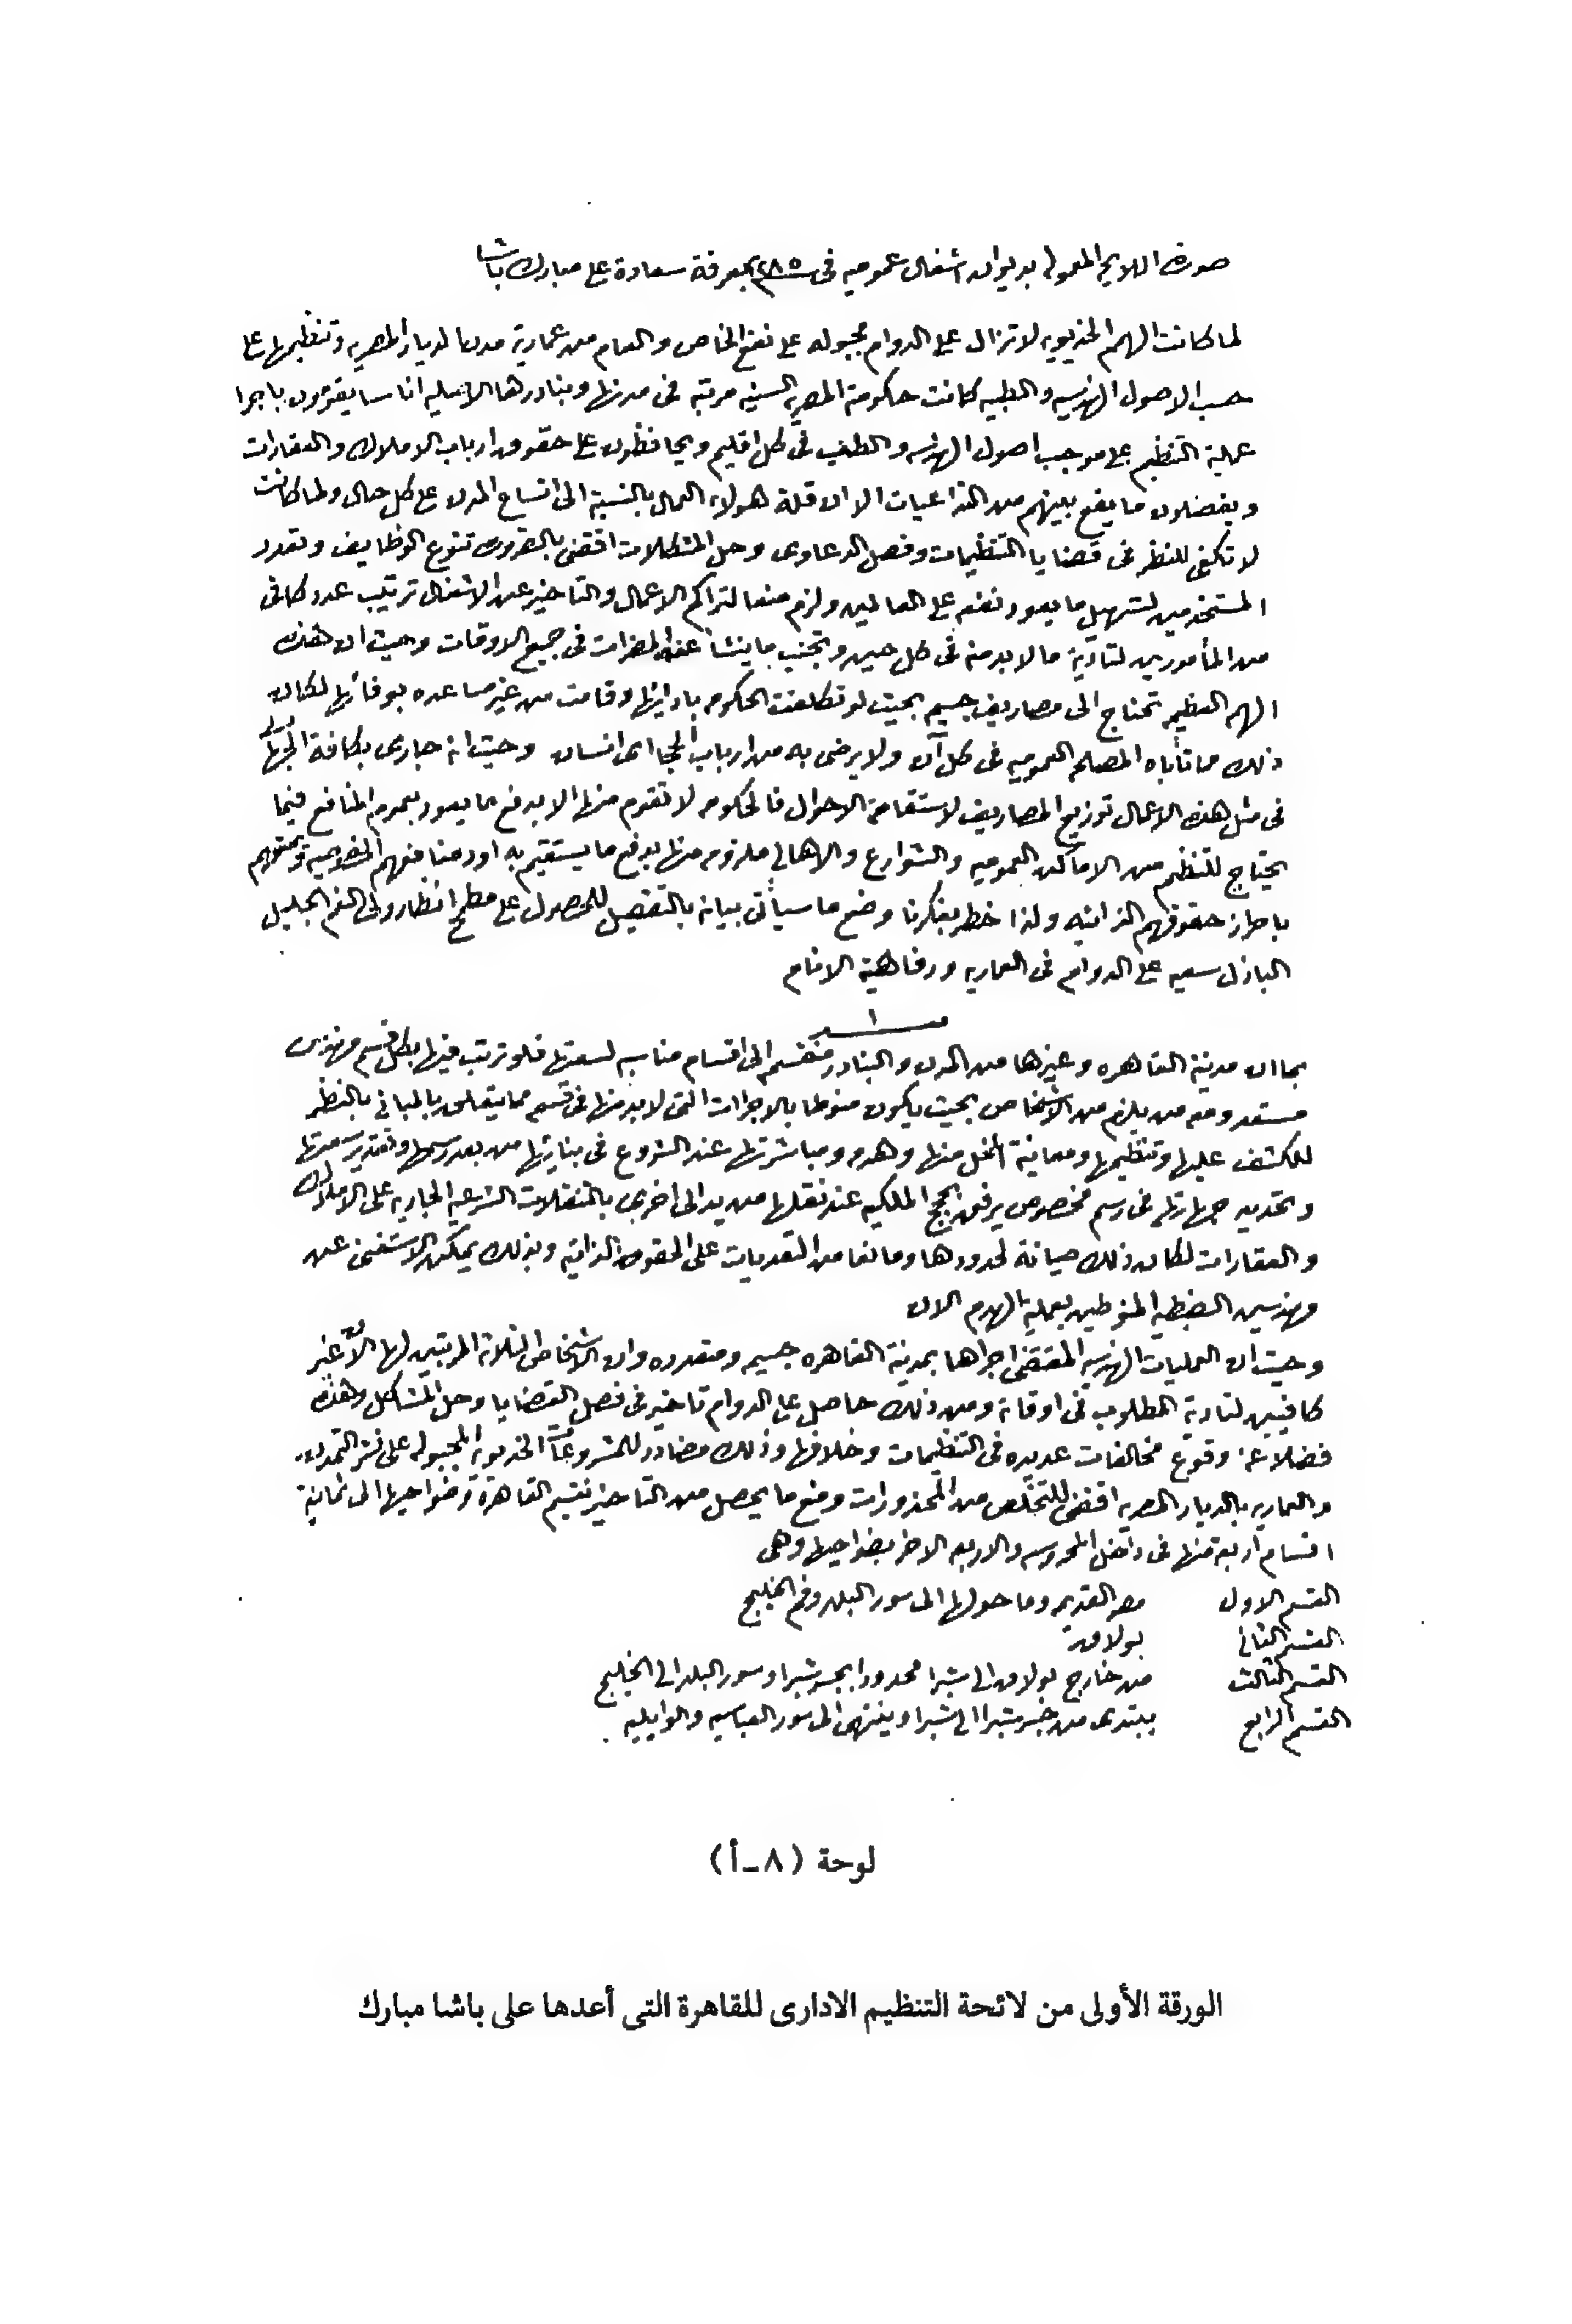 صورة اللايحه المعموله بديوان اشغال عموميه فى ١٢٨٥ بمعرفة سعادة على مبارك باشا
لما كانت الهمم الخديويه لا تزال على الدوام مجبوله على نفع الخاص والعام من عمارية مدن الديار المصريه وتنظيمها على
حسب الاصول الهندسيه والطبيه كانت حكومة المصريه السنيه مرتبه فى مدنها وبنادرها الاصليه اناسا يقومون باجرا
عملية التنظيم على موجب اصول الهندسه والطب فى كل اقليم ويحافظون على حقوق ارباب الاملاك والعقارات
ويفصلون ما يقع بينهم من النزاعيات الا ان قلة هولاء العمال بالنسبة الى اتساع المدن على كل حال ولما كانت
لا تكفى للنظر فى قضايا التنظيمات وفصل الدعاوى وحل المشكلات اقتضى بالضرورى تنوع الوظايف وتعدد
المستخدمين لتسهيل ما يعود نفعه على العالمين ولزم منعا لتراكم الاعمال والتاخير عن الاشغال ترتيب عدد كافى
من المأمورين لتادية ما لابد منه فى كل حين وتجنب ما ينشأ عنه المضرات فى جميع الاوقات وحيث ان هذه
المهم العظيمه تحتاج الى مصاريف جسيمه بحيث لو تكلفت الحكومه بادائها وقامت من غير مساعده بوفائها لكان
ذلك مما تأباه المصلحه العموميه فى كل آن ولا يرضى به من ارباب الحجا اى انسان وحيث انه جارى بكافة الجهات
فى مثل هذه الاعمال توزيع المصاريف لاستقامة الاحوال فالحكومه لا تقوم منها الا بدفع ما يعود بعموم المنافع فيما
يحتاج للتنظيم من الاماكن العموميه والشوارع والاهالى ملزومه منها بدفع ما يستقيم به اود منافعهم الخصوصيه وتمتعهم
باحراز حقوقهم الذاتيه ولذا خطر بفكرنا وضع ما سيأتى بيانه بالتفصيل للحصول على مطمح انظار ولى النعم الجليل
الباذل سعيه على الدوام فى العماريه ورفاهية الانام
١
بما ان مدينة القاهره وغيرها من المدن والبنادر منقسم الى اقسام مناسبه لسعتها فلو ترتب فيها بكل قسم مهندس
مستعد ومعه من يلزم من الاشخاص بحيث يكون منوطا بالاجراات التى لابد منها فى قسمه مما يتعلق بالمبانى بالنظر
للكشف عليها وتنظيمها ومعاينة المخل منها وهدمه ومباشرتها عند الشروع فى بنائها من بعد رسمها وتقدير قيمتها
وتحديد جهاتها فى رسم مخصوص يرفق بحجج الملكيه عند نقلها من يد الى اخرى بالتنقلات الشرعيه الجاريه على الاملاك
والعقارات لكان ذلك صيانة لحدودها ومانعا من التعديات على الحقوق الذاتيه وبذلك يمكن الاستغنى عن
مهندسين الضبطيه المنوطين بعملية الهدم الان
وحيث ان العمليات الهندسيه المقتضى اجراها بمدينة القاهره جسيمه ومتعدده وان الاشخاص الثلاثة المرتبين لها الآن غير
كافيين لتادية المطلوب فى اوقاته ومن ذلك حاصل على الدوام تاخير فى فصل القضايا وحل المشاكل وهذه
فضلا عن وقوع مخالفات عديده فى التنظيمات وخلافها وذلك مضادد للمشروعات الخديويه المجبوله على نشر التمدن
والعماريه بالديار المصريه اقتضى للتخلص من المحذورات ومنع ما يحصل من التاخير تقسيم القاهرة وضواحيها الى ثمانية
اقسام اربعة منها فى داخل المحروسه والاربعه الاخر بضواحيها وهى
القسم الاول مصر القديمه وما حولها الى سور البلد وفم الخليج
القسم الثانى بولاق
القسم الثالث من خارج بولاق الى شبرا محدودا بجسر شبرا وسور البلد الى الخليج
القسم الرابع يبتدى من جسر شبرا الى شبرا وينتهى الى سور العباسيه والوايليه
لوحة (٨ـأ)
الورقة الأولى من لائحة التنظيم الادارى للقاهرة التى أعدها على باشا مبارك